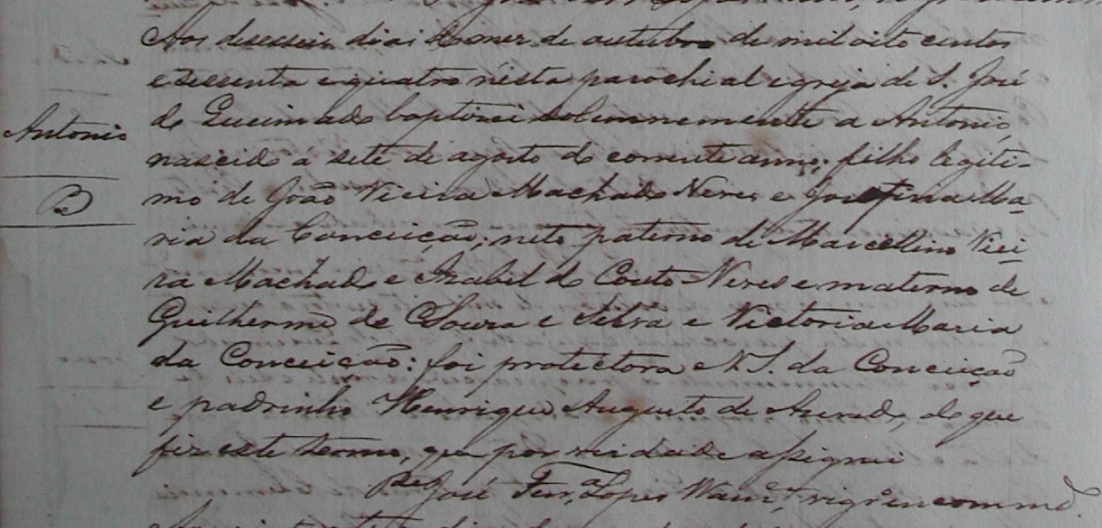 Aos desesseis dias do mez de outubro de mil oito centos
e sessenta e quatro n'esta parochial igreja de S. José
do Queimado baptizei solemnemente a Antonio,
Antonio
nascido á sete de agosto do corrente anno, filho legiti-
mo de João Vieira Machado Neves e Jozefina Ma-
B
ria da Conceição; neto paterno de Marcellino Viei-
ra Machado e Izabel do Couto Neves e materno de
Guilherme de Souza e Silva e Victoria Maria
da Conceição: foi protectora N. S. da Conceição
e padrinho Henrique Augusto de Azevedo, do que
fiz este termo, que por verdade assignei
José Ferr.a Lopes vigr.o encommd.o